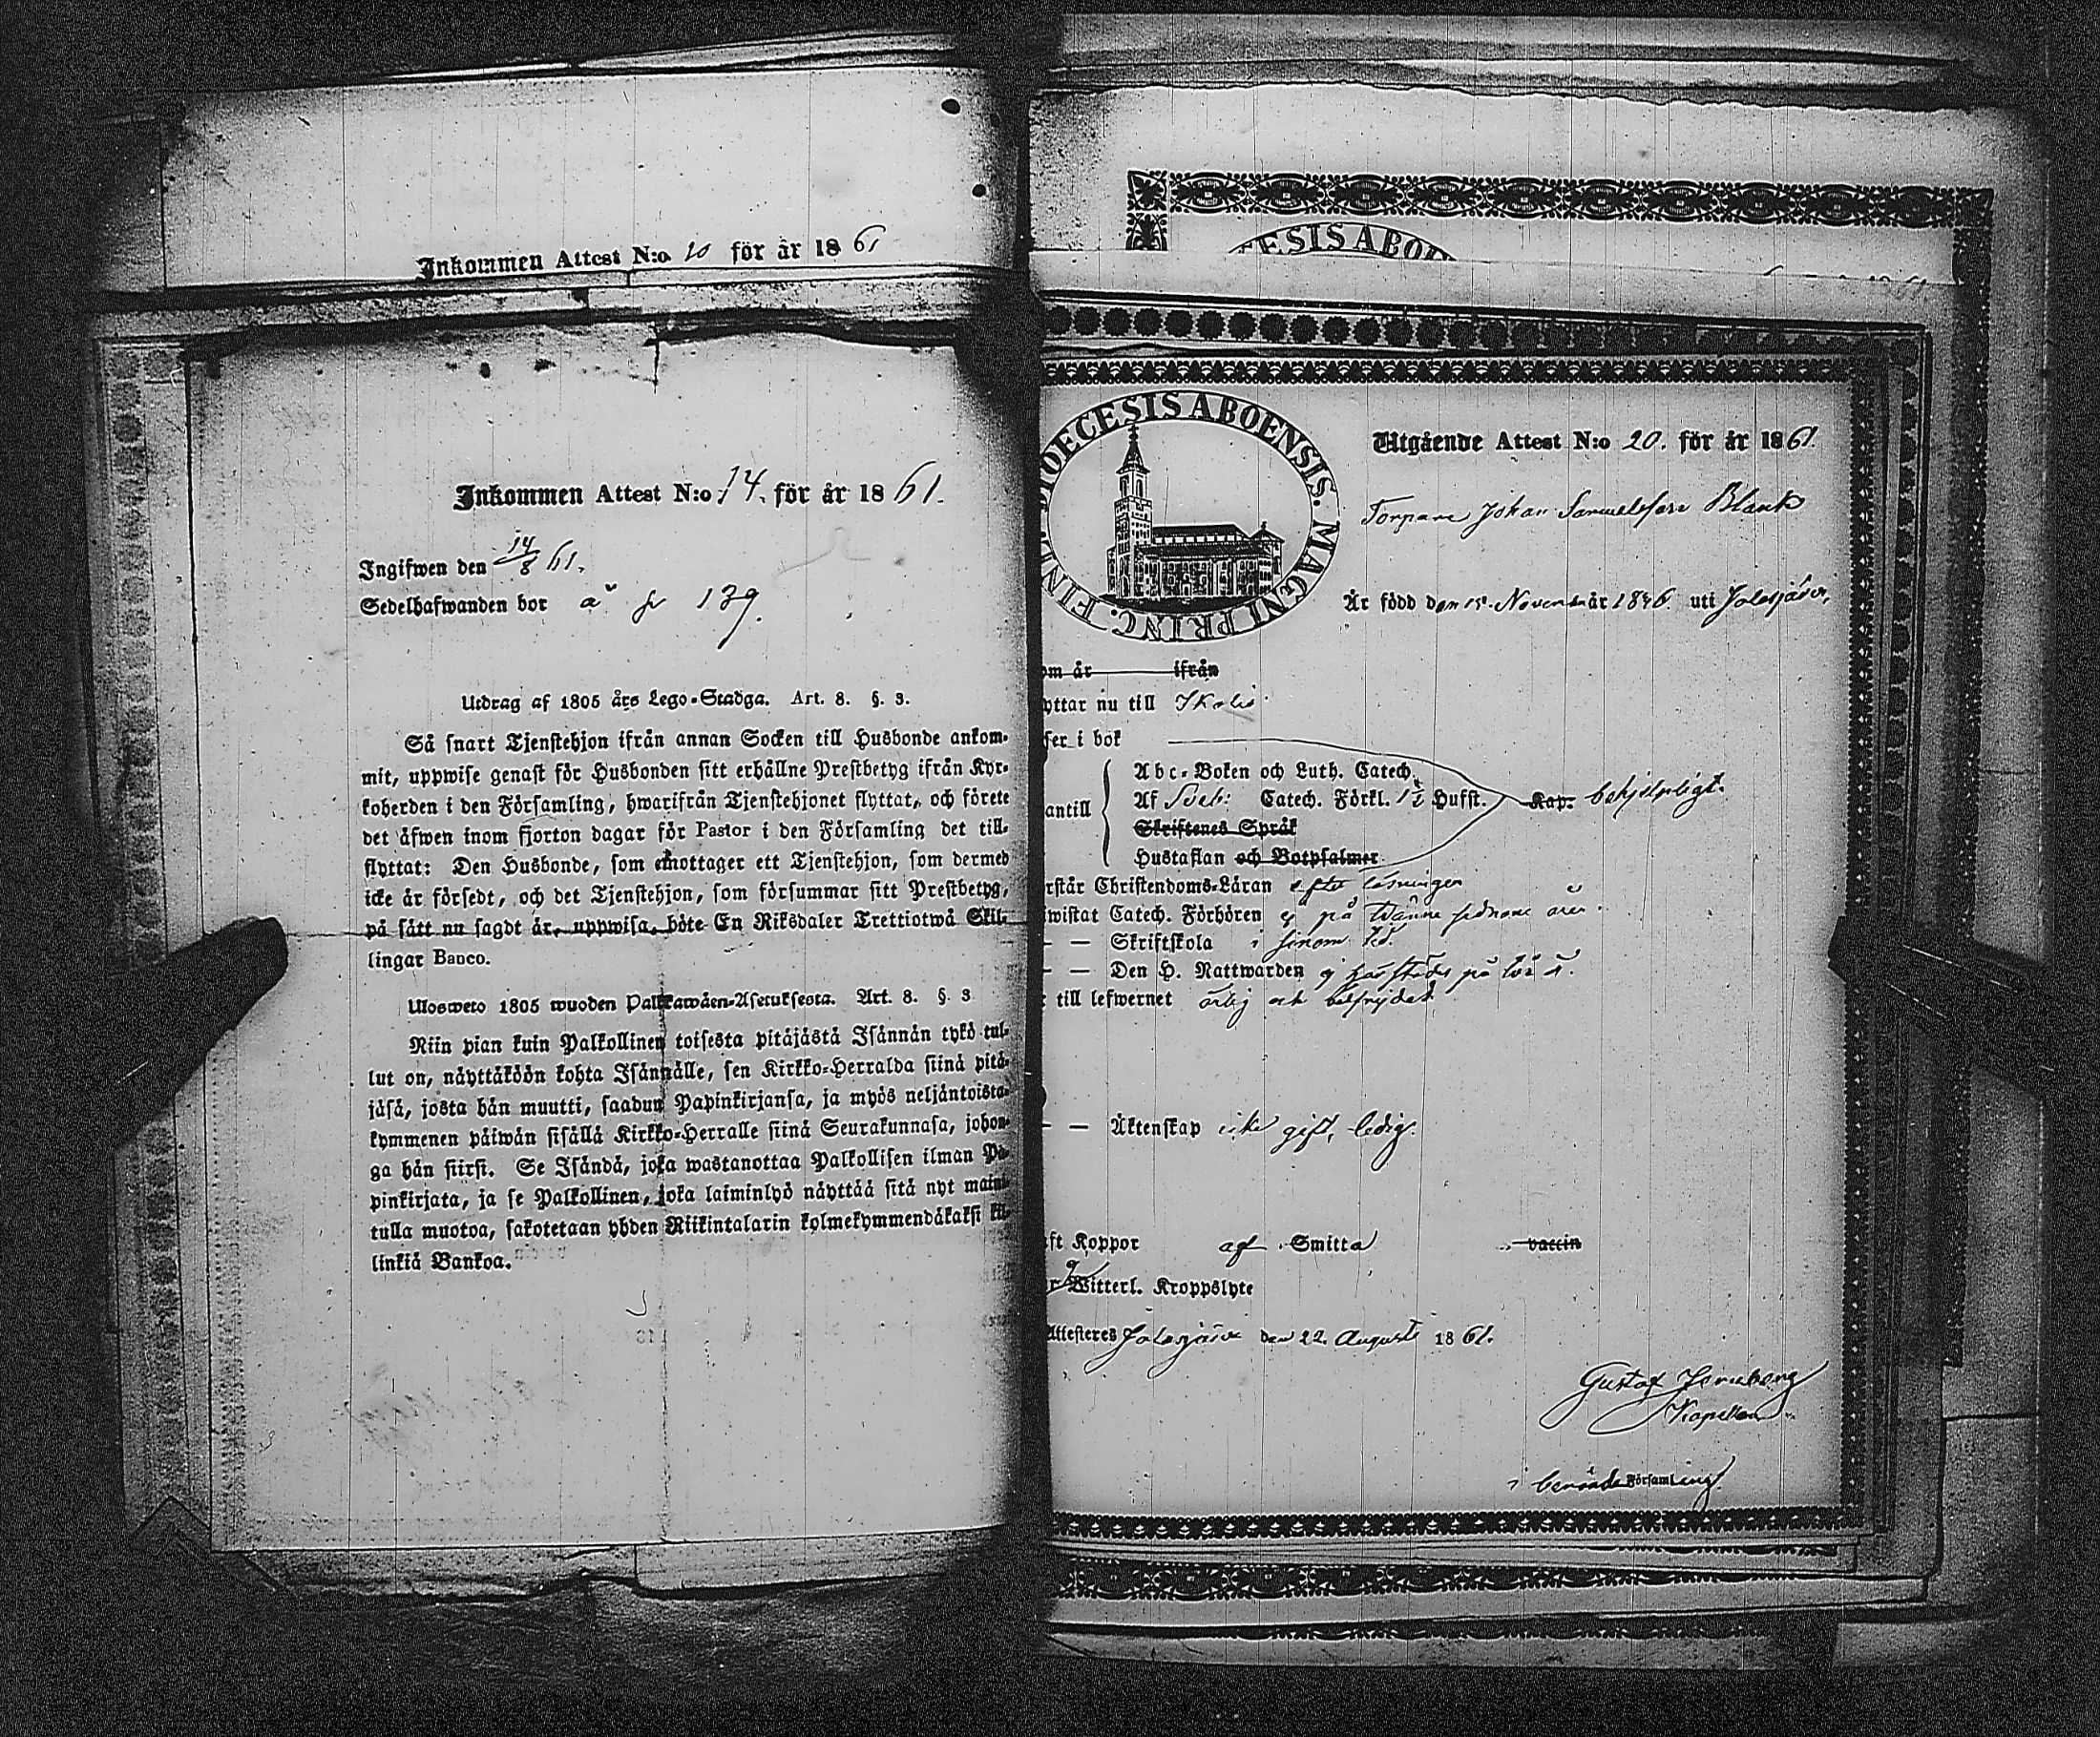 Inkommen Attest N:o 20 för år 1861
Inkommen Attest N:o 14. för år 1861.
Ingifwen den 14/8 61.
Sedelhafwanden bor å 139.
Utdrag af 1805 års Lego-Stadga. Art. 8. §. 3.
Så snart Tjenstehjon ifrån annan Socken till Husbonde ankom-
mit, uppwise genast för Husbonden sitt erhållne Prestbetyg ifrån Kyr-
koherden i den Församling, hwarifrån Tjenstehjonet flyttat, och förete
det äfwen inom fjorton dagar för Pastor i den Församling det till-
flyttat: Den Husbonde, som emottager ett Tjenstehjon, som dermed
icke är försedt, och det Tjenstehjon, som försummar sitt Prestbetyg,
på sätt nu sagdt är, uppwisa, böte En Riksdaler Trettiotwå Skil-
lingar Banco.
Ulosweto 1805 wuoden Palkkawäen-Asetuksesta. Art. 8. §. 3
Niin pian kuin Palkollinen toisesta pitäjästä Isännän tykö tul-
lut on, näyttäköön kohta Isännälle, sen Kirkko-Herralda siinä pitä-
jäsä, josta hän muutti, saadun Papinkirjansa, ja myös neljäntoista-
kymmenen päiwän sisällä Kirkko-Herralle siinä Seurakunnasa, johon-
ga hän siirsi. Se Isändä, joka wastanottaa Palkollisen ilman Pa-
pinkirjata, ja se Palkollinen, joka laiminlyö näyttää sitä nyt maini-
tulla muotoa, sakotetaan yhden Riikintalarin kolmekymmendäkaksi kil-
linkiä Bankoa.
ESIS ABOE
DIOECESIS ABOENSIS. MAGNI PRINC. FINN
Utgående Attest N:o 20. för år 1861.
Torpare Johan Samuelsson Blank
Är född den 15. November år 1826. uti Jalasjärvi,
om år ifrån
yttar nu till
ser i bok
antill
Abc-Boken och Luth. Catech.
Af Sveb: Catech. Förkl. 1½ Hufst. Kap. behjelpligt.
Skriftenes Språk
Hustaflan och Botpsalmer
rstår Christendoms-Läran efter läsningen
wistat Catech. Förhören ej på tvänne sednare åren.
— — Skriftskola i sinom tid.
— — Den H. Nattwarden ej på
r till lefwernet ärlig och beskjedad
— — Äktenskap icke gift, ledig.
ft Koppor af Smitta vaccin
r ej Witterl. Kroppslyte
Attesteres Jalasjärvi den 22. Augusti 1861.
Gustaf
Kapellan
i berörde Församling.